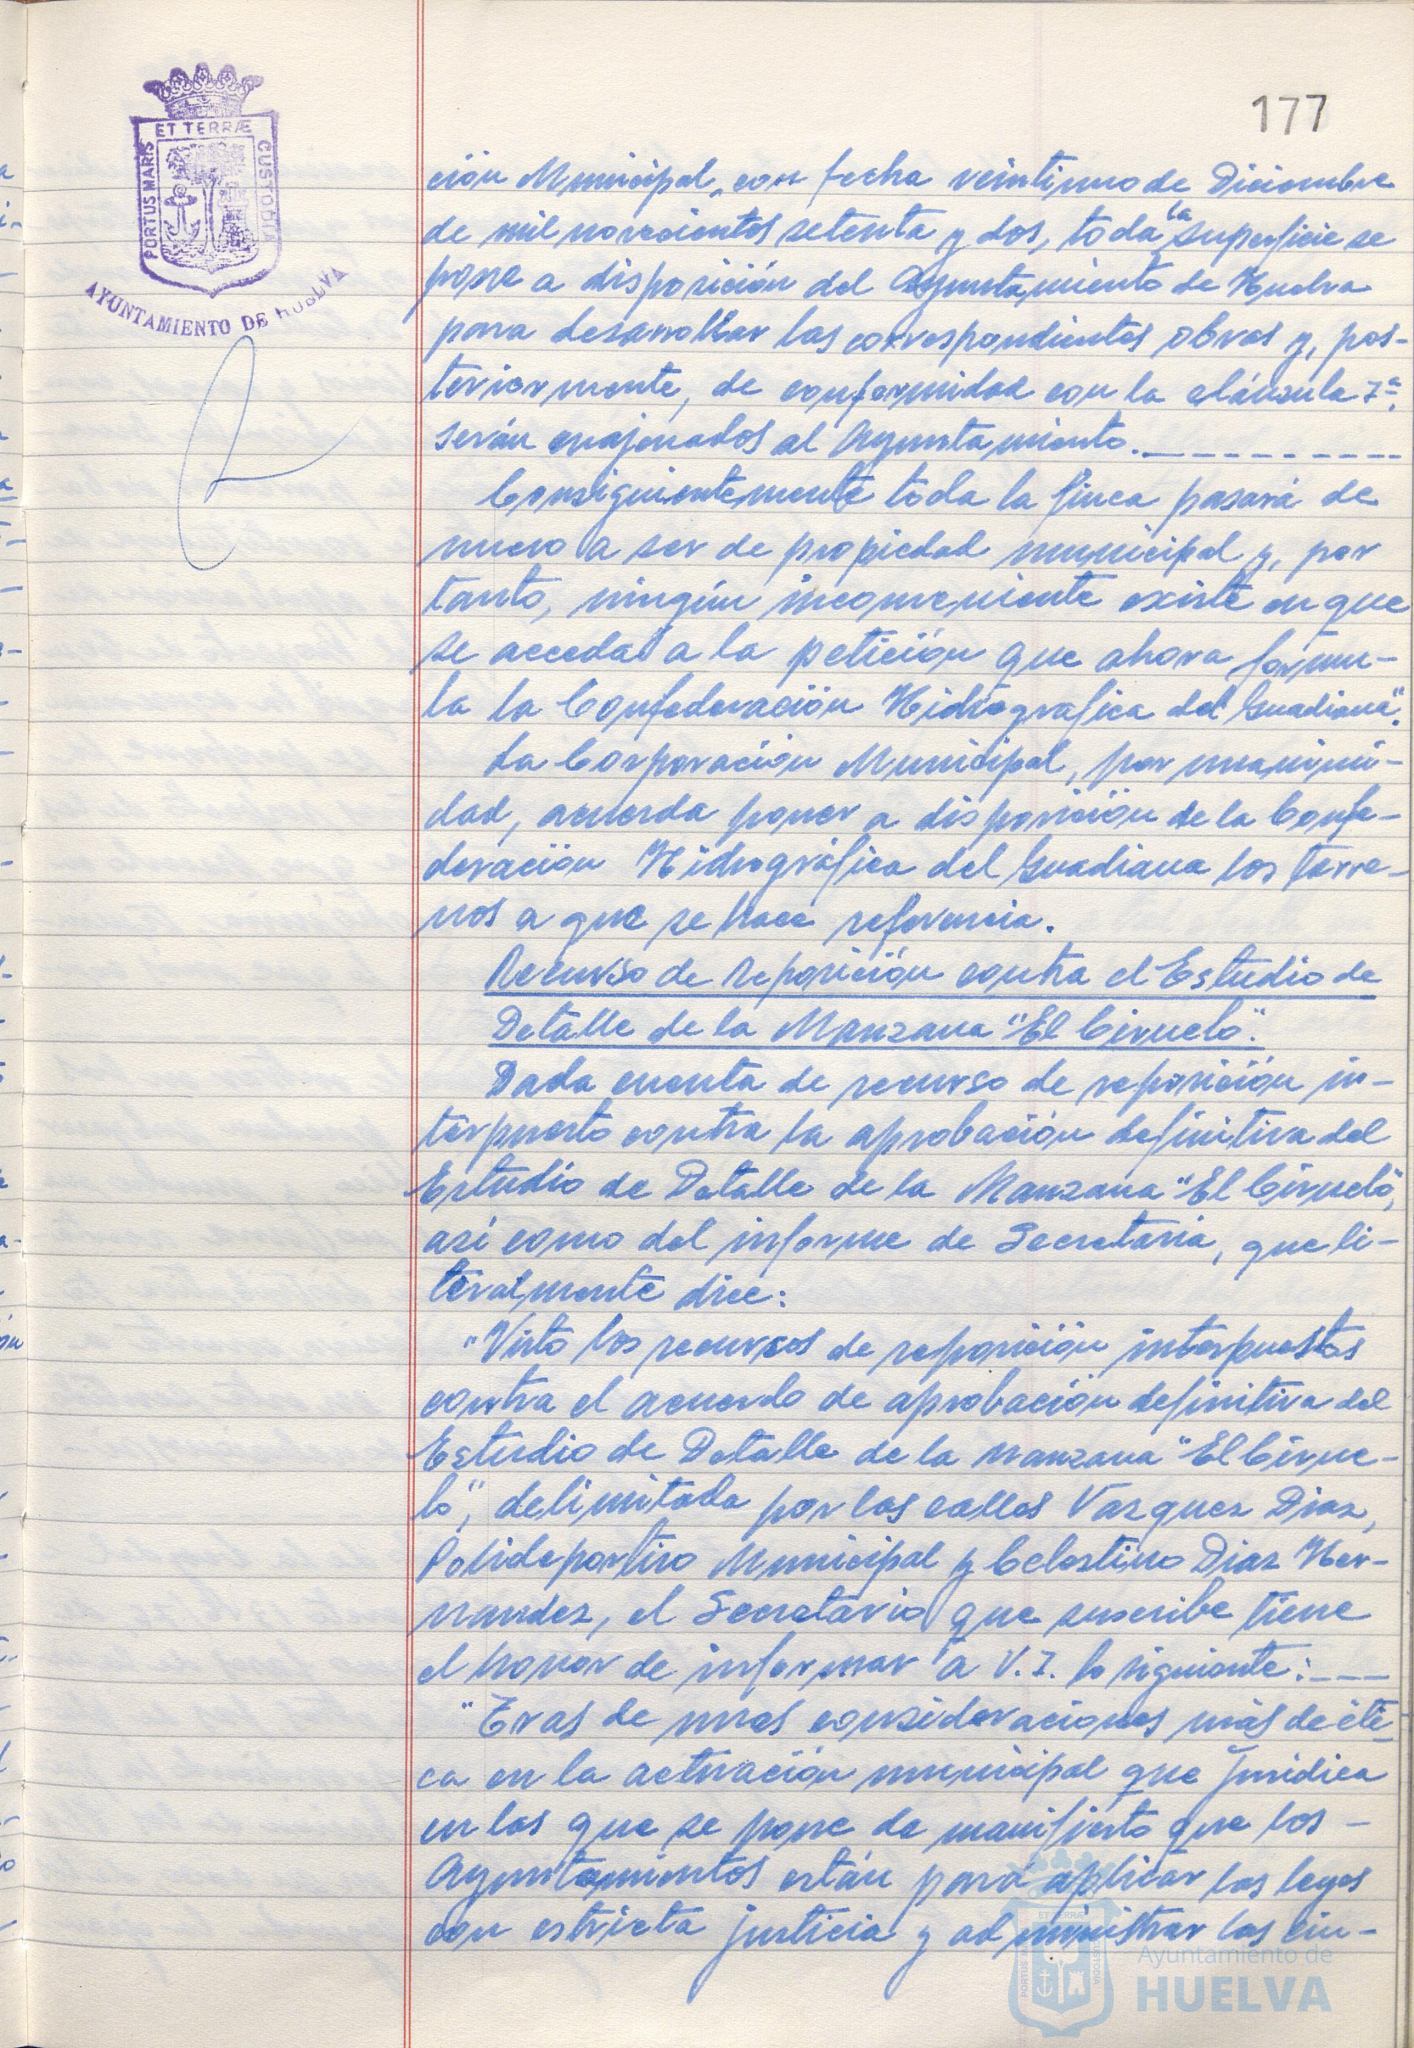 177
ET TERRÆ
PORTUS MARIS
CUSTODIA
AYUNTAMIENTO DE HUELVA
ción Municipal, con fecha veintiuno de Diciembre
de mil novecientos setenta y dos, toda la superficie se
pone a disposición del Ayuntamiento de Huelva
para desarrollar las correspondientes obras y, pos-
teriormente, de conformidad con la cláusula 7ª,
serán enajenados al Ayuntamiento.
Consiguientemente toda la finca pasará de
nuevo a ser de propiedad municipal y, por
tanto, ningún inconveniente existe en que
se acceda a la petición que ahora formu-
la la Confederación Hidrográfica del Guadiana".
La Corporación Municipal, por unanimi-
dad, acuerda poner a disposición de la Confe-
deración Hidrográfica del Guadiana los terre-
nos a que se hace referencia.
Recurso de Reposición contra el Estudio de
Detalle de la Manzana "El Ciruelo".
Dada cuenta de recurso de reposición in-
terpuesto contra la aprobación definitiva del
Estudio de Detalle de la Manzana "El Ciruelo",
así como del informe de Secretaria, que li-
teralmente dice:
"Visto los recursos de reposición interpuestos
contra el acuerdo de aprobación definitiva del
Estudio de Detalle de la manzana "El Cirue-
lo", delimitada por las calles Vazquez Diaz,
Polideportivo Municipal y Celestino Diaz Her-
nandez, el Secretario que suscribe tiene
el honor de informar a V.I. lo siguiente:
"Tras de unas consideraciones más de éti-
ca en la actuación municipal que jurídica
en las que se pone de manifiesto que los -
Ayuntamientos están para aplicar las leyes
con estricta justicia y administrar los ciu-
Ayuntamiento de
HUELVA